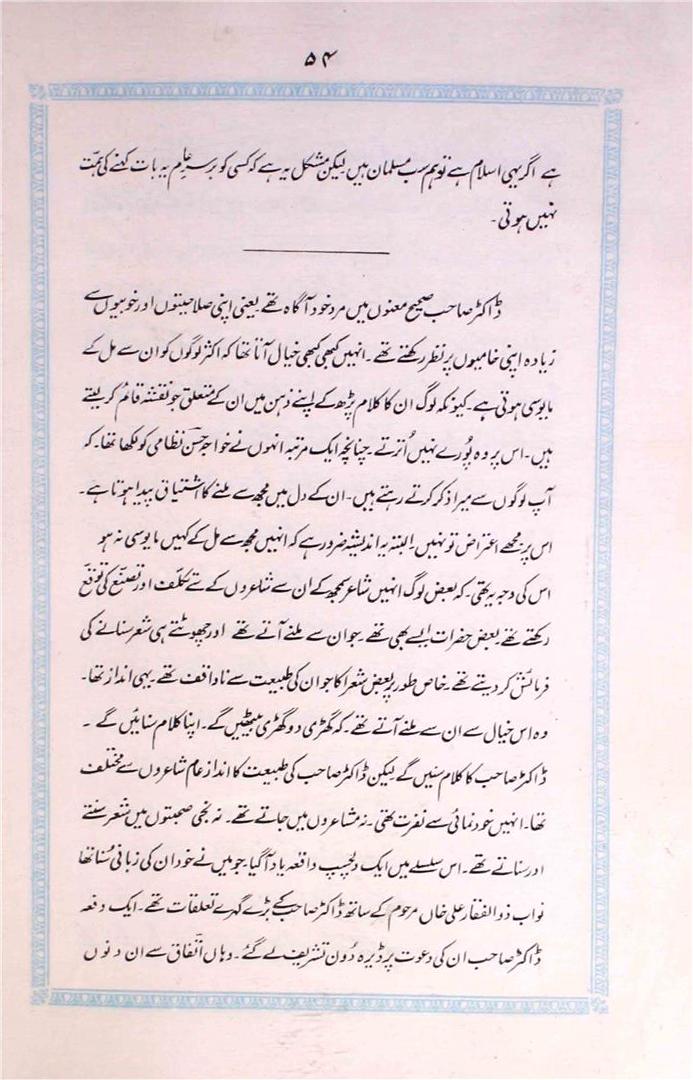 ۵۴
ہے اگر یہی اسلام ہے تو ہم سب مسلمان ہیں لیکن مشکل یہ ہے کہ کسی کو برسرِ عام یہ بات کہنے کی ہمّت
نہیں ہوتی۔
ڈاکٹر صاحب صحیح معنوں میں مرد خود آگاہ تھے یعنی اپنی صلاحیتوں اور خوبیوں سے
زیادہ اپنی خامیوں پر نظر رکھتے تھے۔ انہیں کبھی کبھی خیال آتا تھا کہ اکثر لوگوں کو ان سے مل کے
مایوسی ہوتی ہے۔ کیونکہ لوگ ان کا کلام پڑھ کے اپنے ذہن میں ان کے متعلق جو نقشہ قائم کر لیتے
ہیں۔ اس پر وہ پُورے نہیں اُترتے۔ چنانچہ ایک مرتبہ انہوں نے خواجہ حسن نظامی کو لکھا تھا۔ کہ
آپ لوگوں سے میرا ذکر کرتے رہتے ہیں۔ ان کے دل میں مجھ سے ملنے کا اشتیاق پیدا ہوتا ہے۔
اس پر مجھے اعتراض تو نہیں۔ البتہ یہ اندیشہ ضرور ہے کہ انہیں مجھ سے مل کے کہیں مایوسی نہ ہو
اس کی وجہ یہ تھی۔ کہ بعض لوگ انہیں شاعر سمجھ کے ان سے شاعروں کے سے تکلّف اور تصنّع کی توقع
رکھتے تھے۔ بعض حضرات ایسے بھی تھے۔ جو ان سے ملنے آتے تھے اور چھوٹتے ہی شعر سنانے کی
فرمائش کر دیتے تھے۔ خاص طور پر بعض شعرا کا جو ان کی طبیعت سے ناواقف تھے۔ یہی انداز تھا۔
وہ اس خیال سے ان سے ملنے آتے تھے۔ کہ گھڑی دو گھڑی بیٹھیں گے۔ اپنا کلام سنائیں گے ۔
ڈاکٹر صاحب کا کلام سنیں گے لیکن ڈاکٹر صاحب کی طبیعت کا انداز عام شاعروں سے مختلف
تھا۔ انہیں خود نمائی سے نفرت تھی۔ نہ مشاعروں میں جاتے تھے۔ نہ نجی صحبتوں میں شعر سنتے
اور سناتے تھے۔ اس سلسلے میں ایک دلچسپ واقعہ یاد آ گیا۔ جو میں نے خود ان کی زبانی سُنا تھا
نواب ذوالفقار علی خاں مرحوم کے ساتھ ڈاکٹر صاحب کے بڑے گہرے تعلقات تھے۔ ایک دفعہ
ڈاکٹر صاحب ان کی دعوت پر ڈیرہ دُون تشریف لے گئے۔ وہاں اتّفاق سے ان دنوں